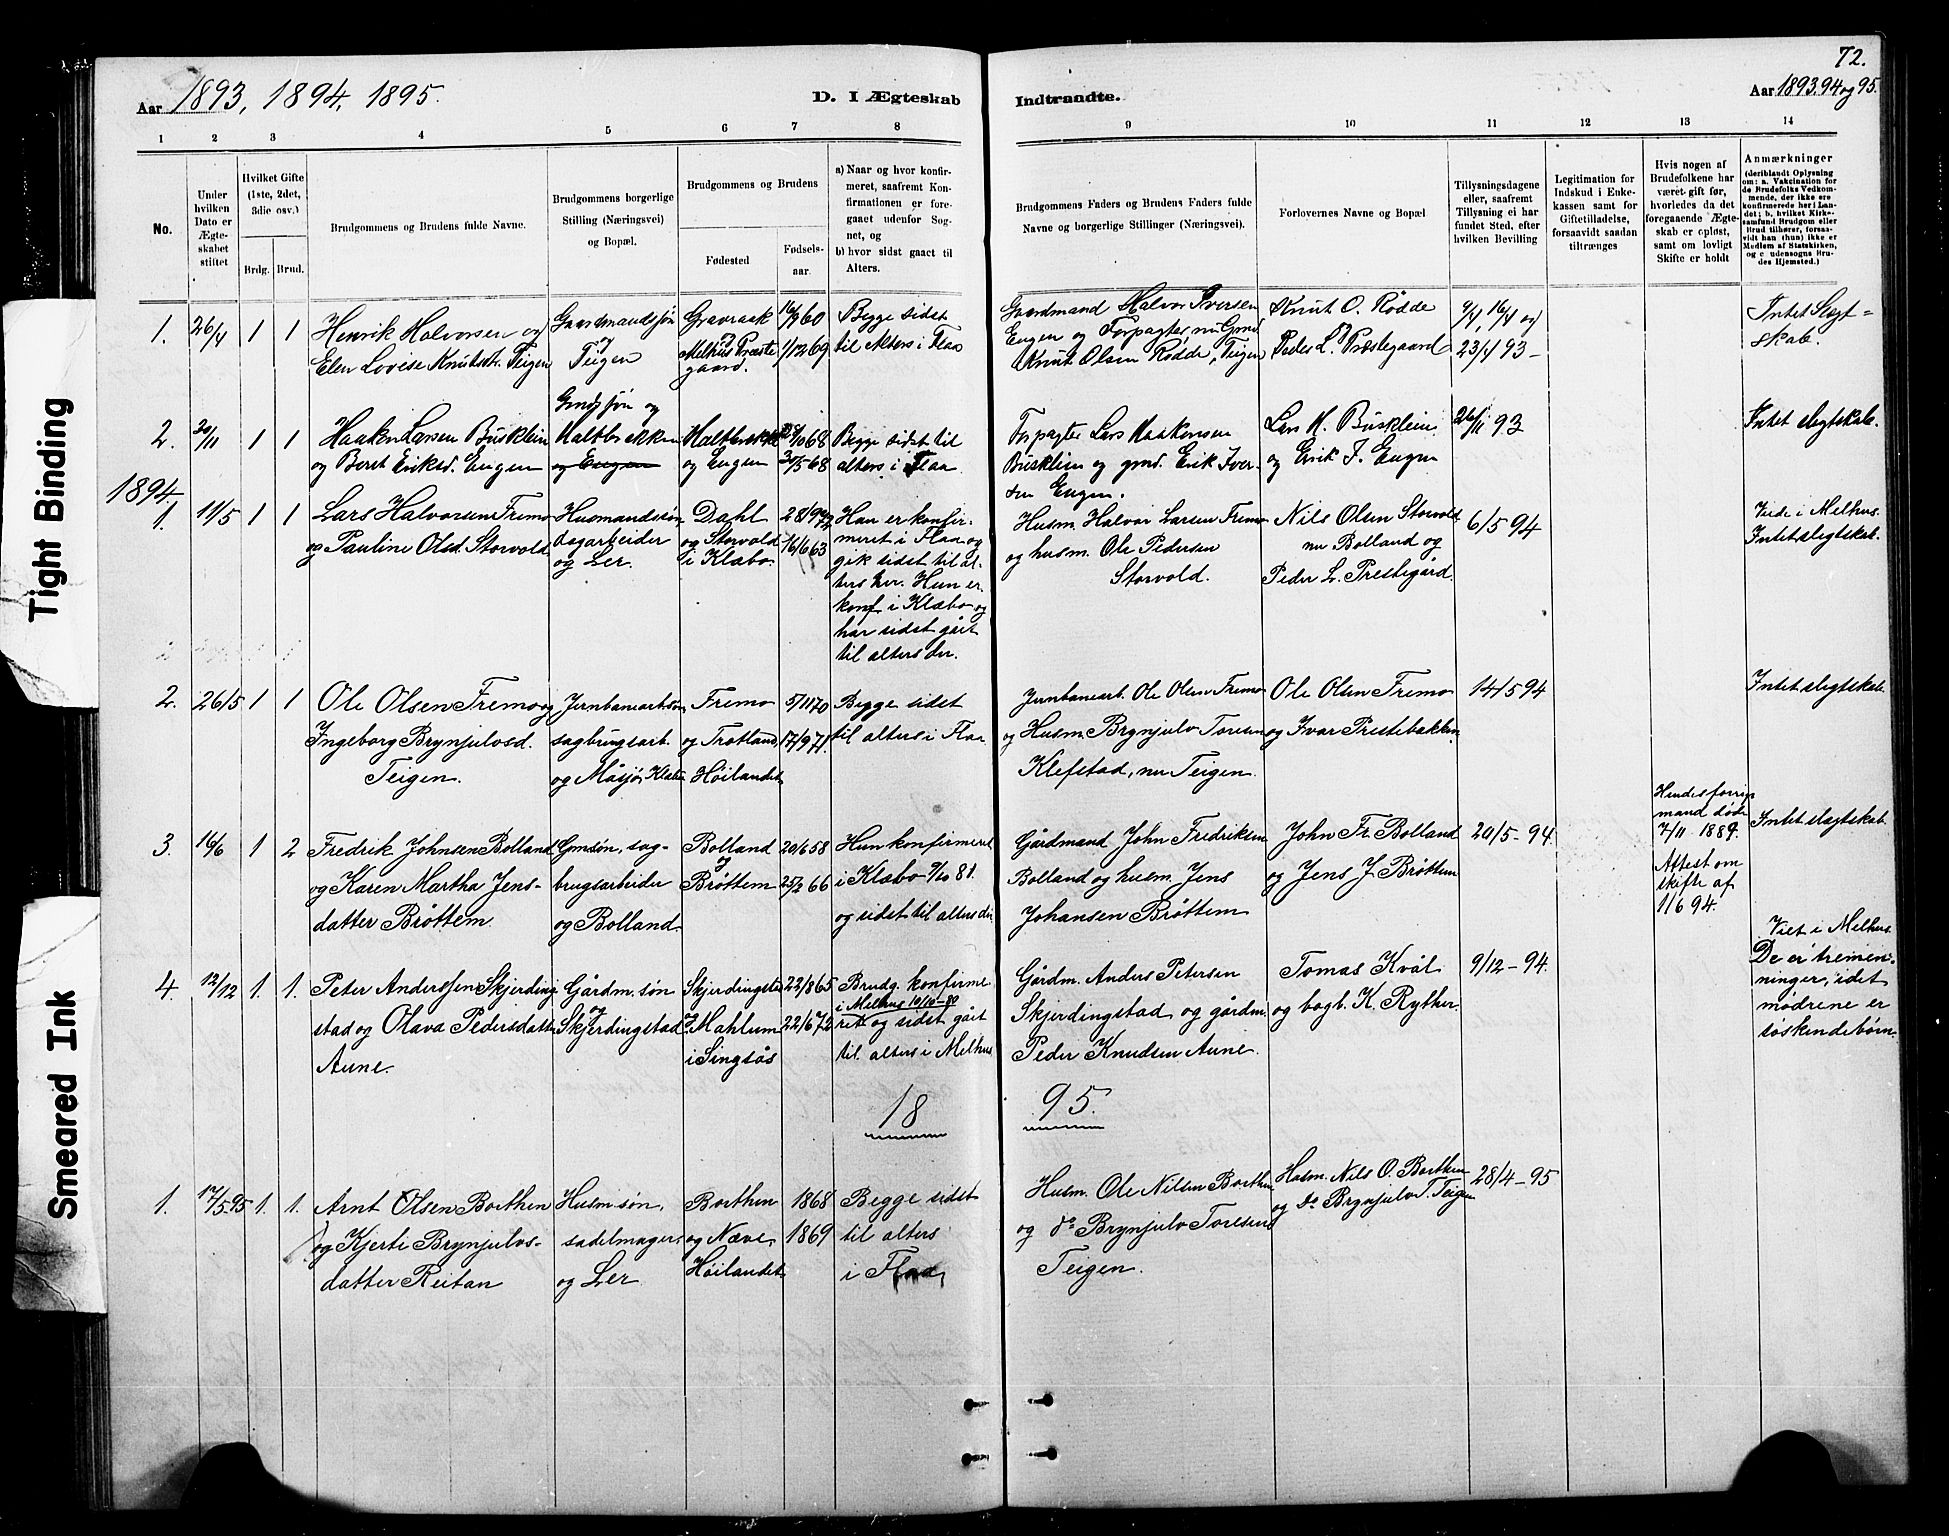 72.
Aar 1893, 1894, 1895.
D. I Ægteskab
Indtraadte.
Aar 1893, 94 og 95.
1 2 3 4 5 6 7 8 9 10 11 12 13 14
No.
Under hvilken Dato er Ægteskabet stiftet
Hvilket Gifte (1ste, 2det, 3die osv.)
Brdg. Brud.
Brudgommens og Brudens fulde Navne.
Brudgommens borgerlige Stilling (Næringsvei) og Bopæl.
Brudgommens og Brudens
Fødested
Fødselsaar.
a) Naar og hvor konfirmeret, saafremt Konfirmationen er foregaaet udenfor Sognet, og
b) hvor sidst gaaet til Alters.
Brudgommens Faders og Brudens Faders fulde Navne og borgerlige Stillinger (Næringsvei).
Forlovernes Navne og Bopæl
Tillysningsdagene eller, saafremt Tillysning ei har fundet Sted, efter hvilken Bevilling
Legitimation for Indskud i Enkekassen samt for Giftetilladelse, forsaavidt saadan tiltrænges
Hvis nogen af Brudefolkene har været gift før, hvorledes da det foregaaende Ægteskab er opløst, samt om lovligt Skifte er holdt
Anmærkninger (deriblandt Oplysning om: a. Vakcination for de Brudefolks Vedkommende, der ikke ere konfirmerede her i Landet; b, hvilket Kirkesamfund Brudgom eller Brud tilhører, forsaavidt han (hun) ikke er Medlem af Statskirken, og c. udensogns Brudes Hjemsted.)
1. 26/4 1 1
Henrik Halvorsen og
Elen Lovise Knutsdt. Teigen
Gaardmandssøn
og
Teigen
Gravraak 16/9 60
og
Melhus Præstegaard. 1/12 69
Begge sidst
til Alters i Flaa
Gaardmand Halvor Iversen
Eugen og Forpagter nu Gmd.
Knut Olsen Rødde, Teigen
Knut O. Rødde
Peder L. Præstegaard
9/4, 16/4 og
23/4 93 –
Intet Slægt=
skab.
2. 30/11 1 1
Haaken Larsen Busklein
og Beret Eriksd. Eugen
Gmds søn og
Haltbrekken
og Eugen
Haltbrekk
og Eugen
10 68
30/5 68
Begge sidst til
alters i Flaa.
Forpagter Lars Haakensen
Busklein og gmd. Erik Iver-
sen Eugen.
Lars H. Busklein
og Erik I. Eugen
26/11 93
Intet slegtskab.
1894.
1. 11/5 1 1
Lars Halvorsen Fremo
og Pauline Olsd. Storvold
Husmandssøn
dagarbeider
og Ler.
Dahl
og Storvold
i Klæbo.
28/9 72
16/6 63
Han er konfir-
meret i Flaa og
gik sidst til al-
ters her. Hun er
konf. i Klæbo og
har sidst gået
til alters der.
Husm. Halvor Larsen Fremo
og husm. Ole Pedersen
Storvold.
Nils Olsen Storvold
nu Bolland og
Peder L. Prestegård.
6/5 94
Viede i Melhus.
Intet slegtskab.
2. 26/5 1 1
Ole Olsen Fremo og
Ingeborg Brynjulvsd.
Teigen.
Jernbanearb.søn
sagbrugsarb.
og Måsjø, Klæbo
Fremo
og Trotland,
Høilandet
5/11 70
17/9 71.
Begge sidst
til alters i Flaa.
Jernbanearb. Ole Olsen Fremo
og Husm. Brynjulv Toresen
Klefstad, nu Teigen.
Ole Olsen Fremo
og Ivar Prestebakken
14/5 94
Intet slegtskab.
3. 16/6 1 2
Fredrik Johnsen Bolland
og Karen Martha Jens-
datter Brøttem.
Gmsøn, sag-
brugsarbeider
og Bolland.
Bolland
og
Brøttem
20/6 58
25/2 66
Hun konfirmeret
i Klæbo 9/10 81.
og sidst til alters der
Gårdmand John Fredriksen
Bolland og husm. Jens
Johansen Brøttem
John Fr. Bolland
og Jens J. Brøttem
20/5 – 94.
Hendes forrige
mand døde
7/11 1889.
Attest om
skifte af
11 6 94.
Intet slegtskab.
4. 12/12 1. 1.
Peter Anderssen Skjerding
stad og Olava Pedersdatter
Aune.
Gårdm. søn
og
Skjerdingstad
Skjerdingstad
og Mahlum
i Singsås
22/8 65
22/6 72
Brudg. konfirme
i Melhus 10/10 – 80
ret og sidst gået
til alters i Melhus
Gårdm. Anders Petersen
Skjerdingstad og gårdm.
Peder Knudsen Aune.
Tomas Kvål
og bogb. K. Ryther.
9/12 – 94.
Viet i Melhus
De er tremen-
ninger, idet
mødrene er
søskendebørn.
18 95.
1. 17/5 95 1. 1.
Arnt Olsen Borthen
og Kjerti Brynjulvs-
datter Reitan
Husm. søn,
sadelmager,
og Ler.
Borthen
og Næve,
Høilandet
1868
1869
Begge sidst
til alters
i Flaa,
Husm. Ole Nilsen Borthen
og do Brynjulv Toresen
Teigen.
Husm. Nils O. Borthen
og do Brynjulv T. Teigen
28/4 – 95
Tight Binding
Smeared Ink